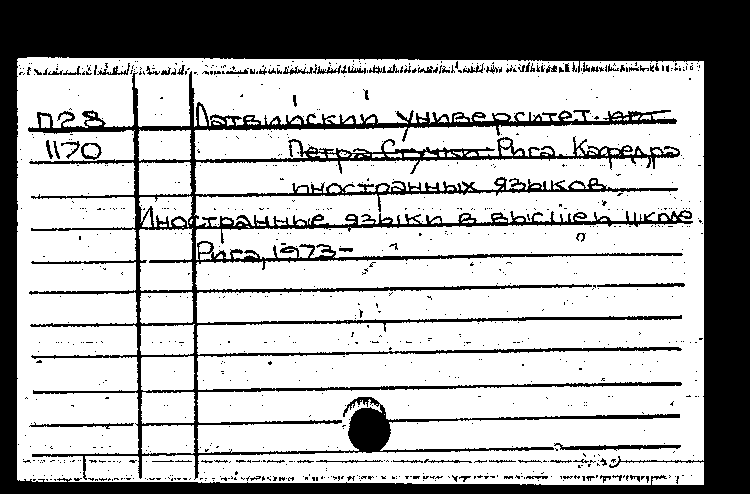 П28 Латвийский университет им.
1170 Петра Стучки. Рига. Кафедра
иностранных языков.
Иностранные языки в высшей школе
Рига, 1973-